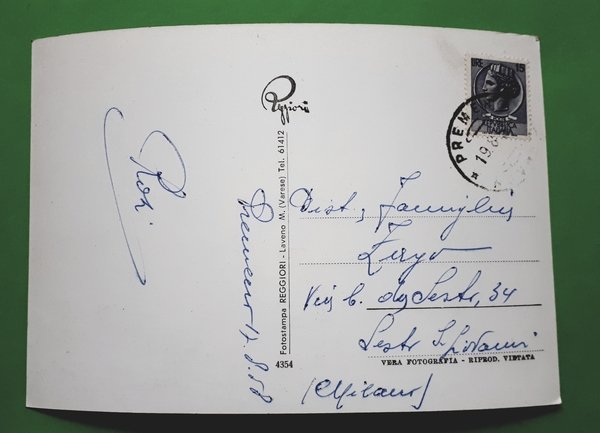 Reggiori
LIRE 15
POSTE ITALIANE
PREM
19.8
Rosi
Premeno 17.8.58
Fotostampa REGGIORI - Laveno M. (Varese) Tel. 61412
4354
Dist, Famiglia
Via C. da Sesto, 34
Sesto S. Giovanni
(Milano)
VERA FOTOGRAFIA - RIPROD. VIETATA